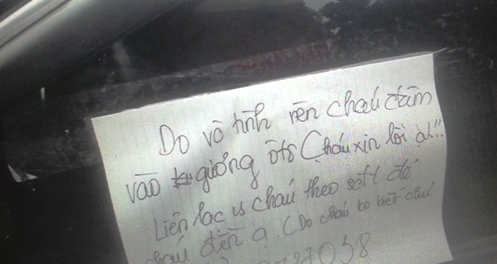 Do vô tình nên cháu đâm
vào gương ôtô Cháu xin lỗi ạ!!
Liên lạc vs cháu theo sđt để
cháu đền ạ (Do cháu ko biết chủ
038